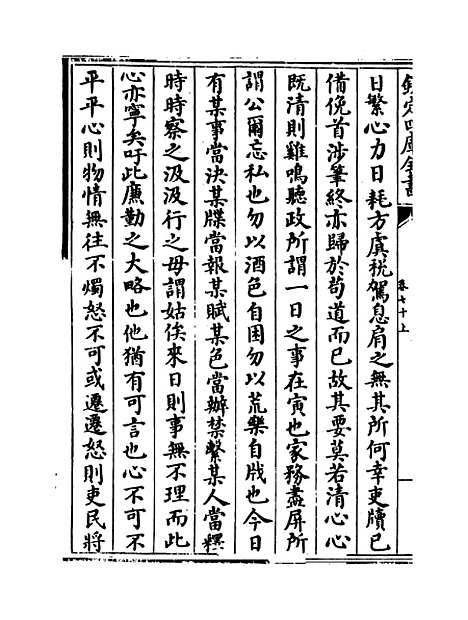 欽定四庫全書
卷七十上
日繁心力日耗方虞稅駕息肩之無其所何幸吏牘已
備俛首涉筆終亦歸於苟道而已故其要莫若清心心
既清則雞鳴聽政所謂一日之事在寅也家務盡屏所
謂公爾忘私也勿以酒色自困勿以荒樂自戕也今日
有某事當決某牒當報某賦某色當辦禁繫某人當釋
時時察之汲汲行之毋謂姑俟來日則事無不理而此
心亦寧矣吁此廉勤之大略也他猶有可言也心不可不
平平心則物情無往不燭怒不可或遷遷怒則吏民將